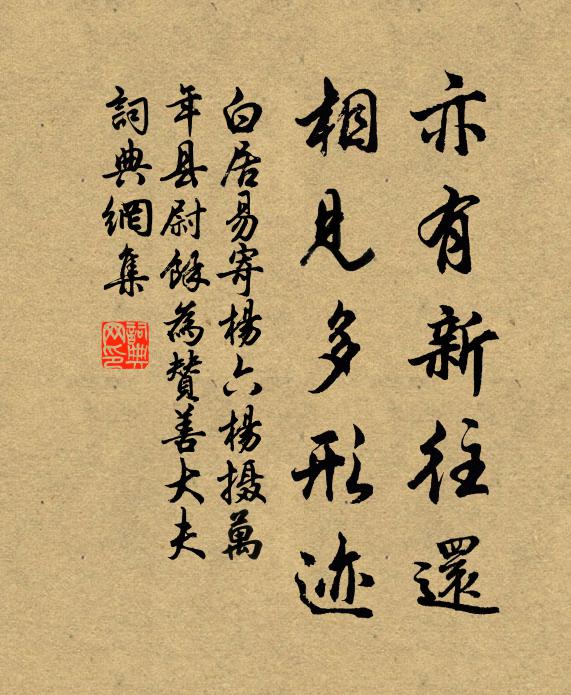 亦有新往還
相見多形迹
白居易寄楊六楊摄萬
年县尉餘為贊善大夫
詞典網集
詞典
网印